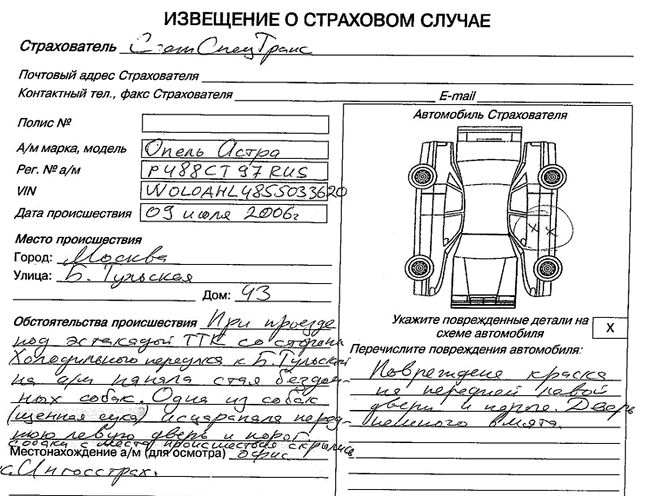 ИЗВЕЩЕНИЕ О СТРАХОВОМ СЛУЧАЕ
Страхователь СпецТранс
Почтовый адрес Страхователя
Контактный тел., факс Страхователя E-mail
Полис №
А/м марка, модель Опель Астра
Рег. № а/м Р488СТ 97 RUS
VIN WOLOAHL4855033620
Дата происшествия 09 июля 2006г
Место происшествия
Город: Москва
Улица: Б. Тульская
Дом: 43
Обстоятельства происшествия При проезде
под эстакадой ТТК со стороны
Холодильного переулка к Б. Тульской
на а/м напала стая бездом-
ных собак. Одна из собак
(щенная сука) исцарапала перед-
нюю левую дверь и порог
собаки с места происшествия скрылись
Местонахождение а/м (для осмотра) офис
с. Ингосстрах.
Автомобиль Страхователя
X X
Укажите поврежденные детали на
схеме автомобиля X
Перечислите повреждения автомобиля:
Повреждена краска
на передней левой
двери и пороге. Дверь
немного вмята.